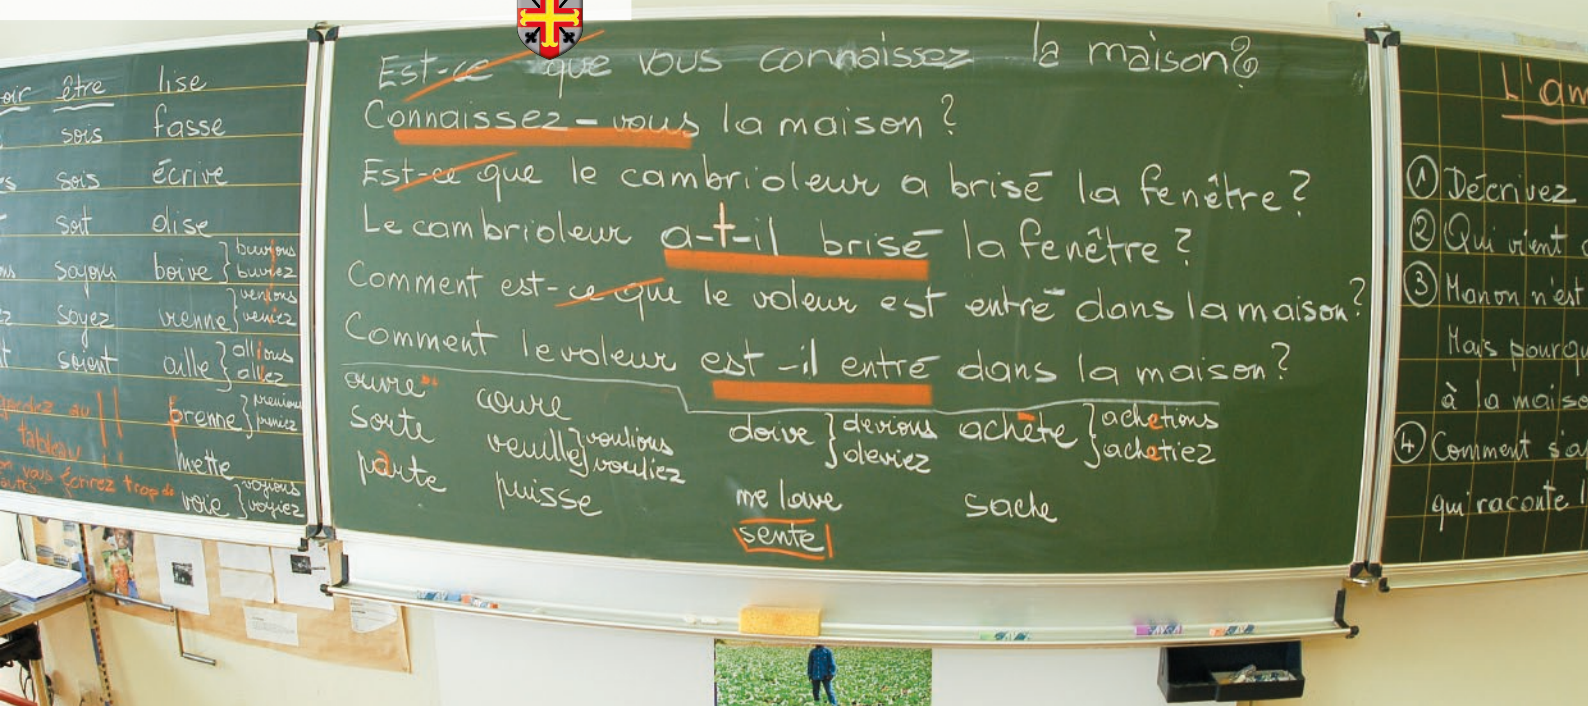 être lise
sois fasse
sois écrive
soit dise
soyons boive } buvions
buviez
soyez vienne } venions
veniez
soient aille } allions
alliez
prenne } prenions
preniez
tableau !!
mette
vous écrirez trop de
voie } voyions
voyiez
Est-ce que vous connaissez la maison?
Connaissez-vous la maison?
Est-ce que le cambrioleur a brisé la fenêtre?
Le cambrioleur a-t-il brisé la fenêtre?
Comment est-ce que le voleur est entré dans la maison?
Comment le voleur est-il entré dans la maison?
ouvre coure
sorte veuille } voulions
vouliez
doive } devions
deviez
achète } achetions
achetiez
parte puisse me lave sache
sente
L'am
① Décrivez
② Qui vient
③ Manon n'est
Mais pourqu
à la maiso
④ Comment s'a
qui raconte l